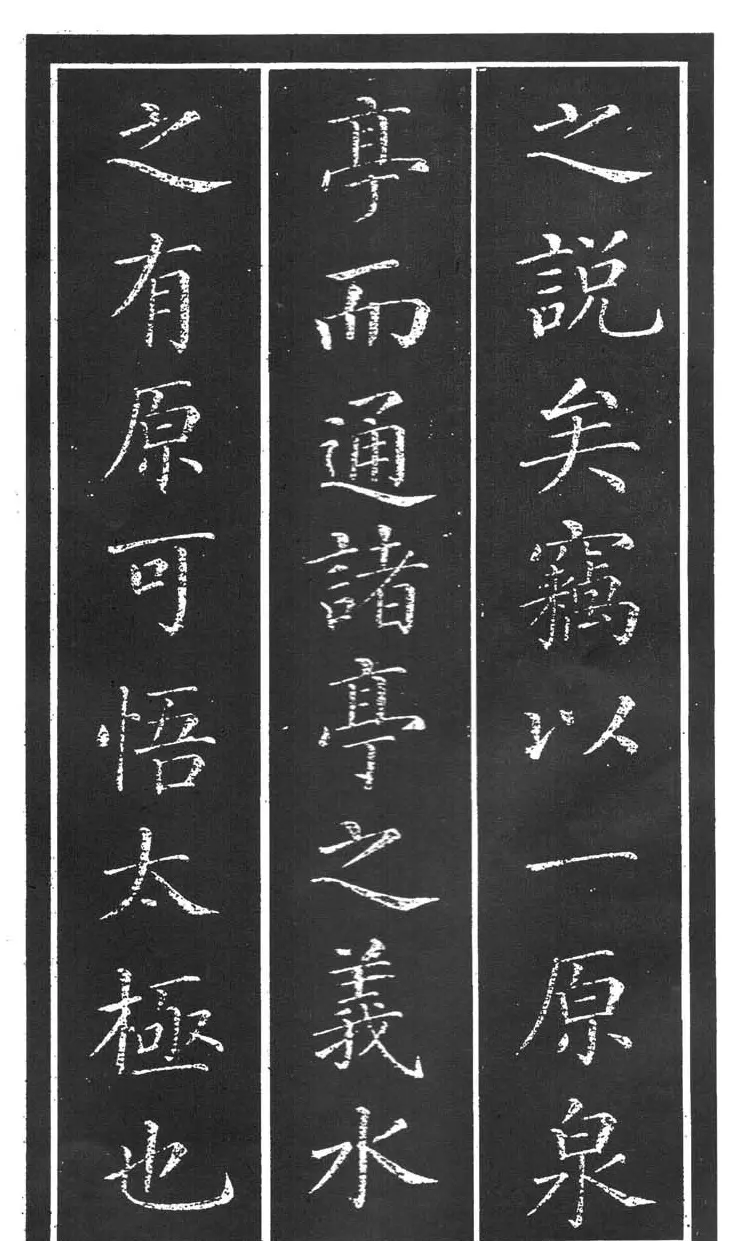 之說矣竊以一原泉
亭而通諸亭之義水
之有原可悟太極也